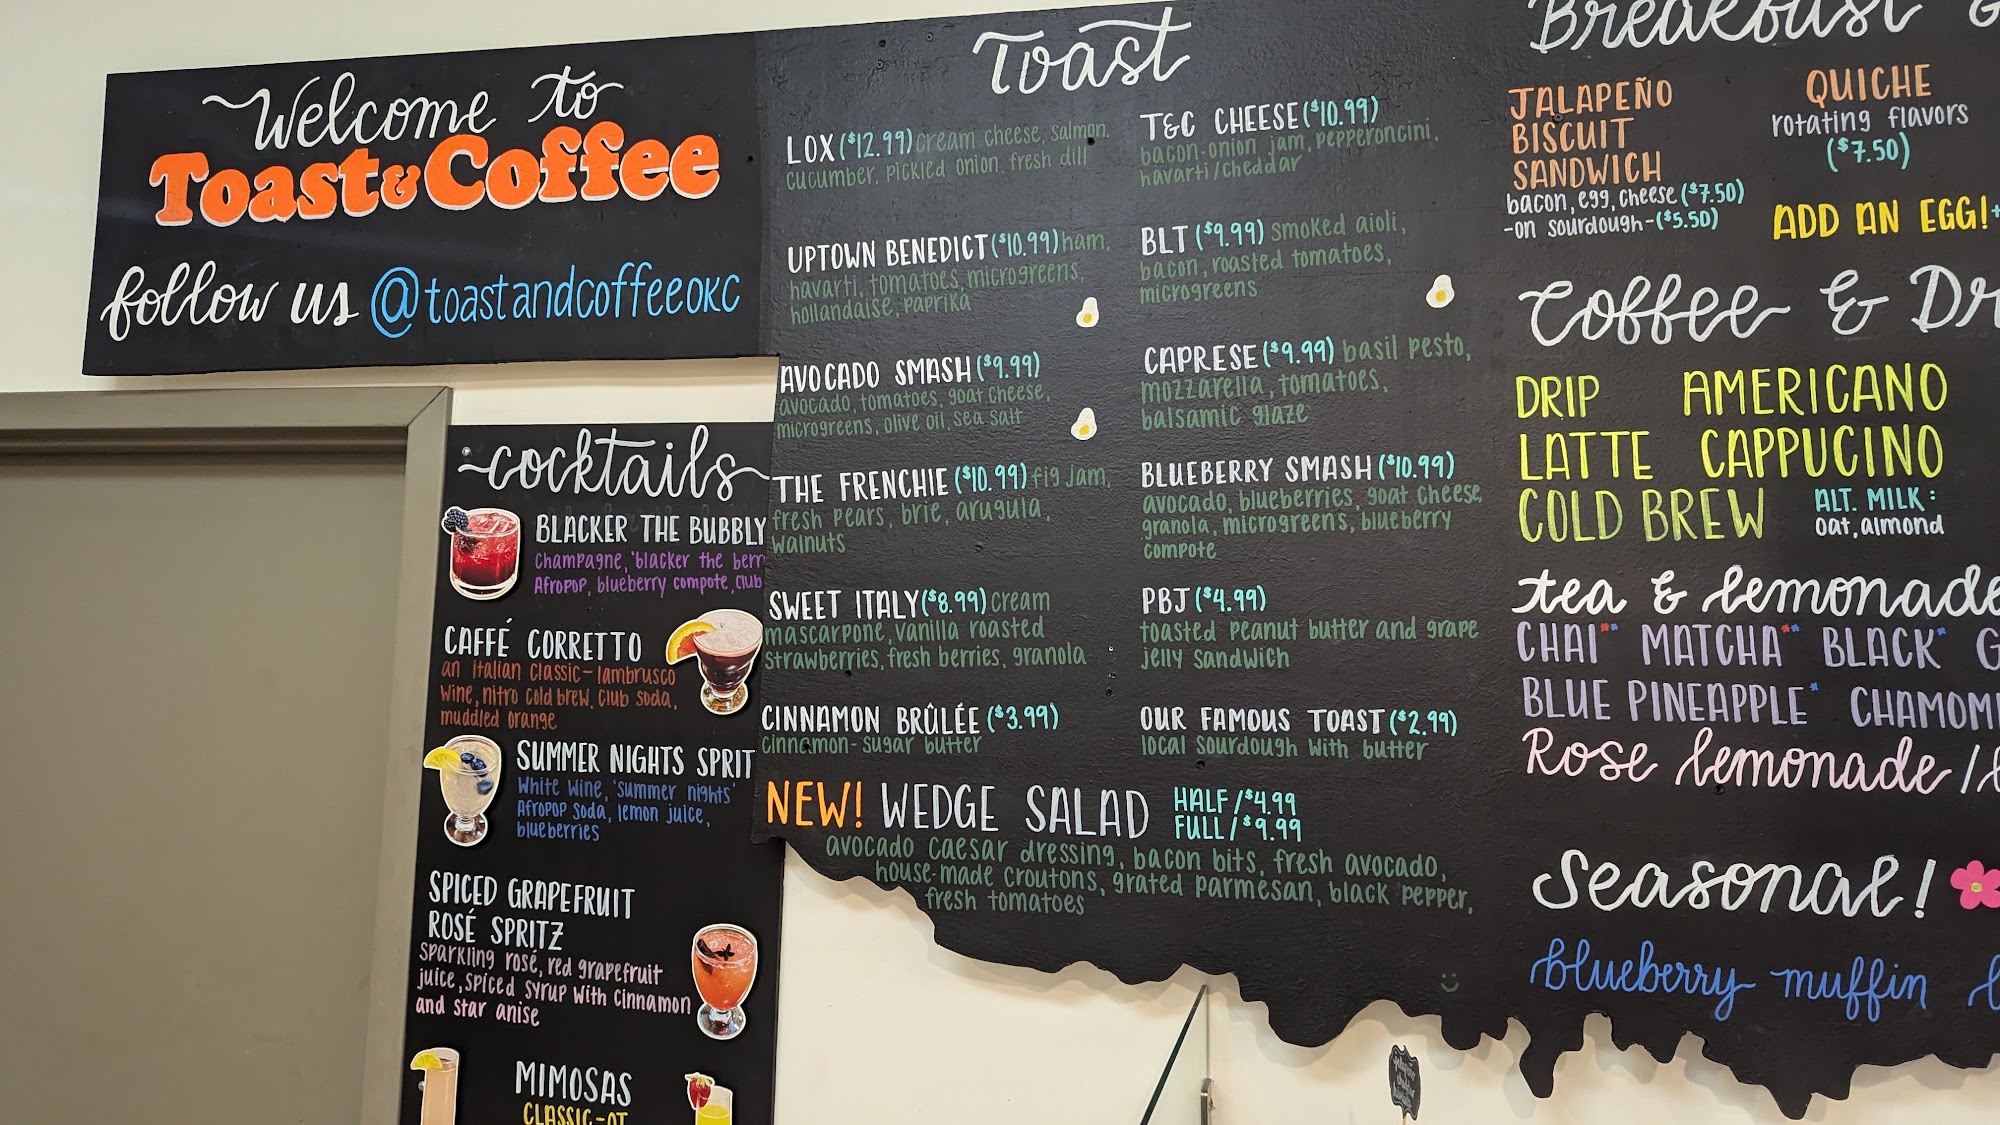 Welcome to
Toast & Coffee
follow us @toastandcoffeeokc
cocktails
BLACKER THE BUBBLY
Champagne, 'blacker the berr
Afropop, blueberry compote, club
CAFFÉ CORRETTO
an italian classic - lambrusco
wine, nitro cold brew, club soda,
muddled orange
SUMMER NIGHTS SPRIT
White wine, 'summer nights'
Afropop soda, lemon juice,
blueberries
SPICED GRAPEFRUIT
ROSÉ SPRITZ
sparkling rosé, red grapefruit
juice, spiced syrup with cinnamon
and star anise
MIMOSAS
CLASSIC-OT
Toast
LOX ($12.99) cream cheese, salmon,
cucumber, pickled onion, fresh dill
UPTOWN BENEDICT ($10.99) ham,
havarti, tomatoes, microgreens,
hollandaise, paprika
AVOCADO SMASH ($9.99)
avocado, tomatoes, goat cheese,
microgreens, olive oil, sea salt
THE FRENCHIE ($10.99) fig jam,
fresh pears, brie, arugula,
walnuts
SWEET ITALY ($8.99) cream
mascarpone, vanilla roasted
strawberries, fresh berries, granola
CINNAMON BRÛLÉE ($3.99)
cinnamon-sugar butter
T&C CHEESE ($10.99)
bacon-onion jam, pepperoncini,
havarti/cheddar
BLT ($9.99) smoked aioli,
bacon, roasted tomatoes,
microgreens
CAPRESE ($9.99) basil pesto,
mozzarella, tomatoes,
balsamic glaze
BLUEBERRY SMASH ($10.99)
avocado, blueberries, goat cheese,
granola, microgreens, blueberry
compote
PBJ ($4.99)
toasted peanut butter and grape
jelly sandwich
OUR FAMOUS TOAST ($2.99)
local sourdough with butter
NEW! WEDGE SALAD
HALF/$4.99
FULL/$9.99
avocado caesar dressing, bacon bits, fresh avocado,
house-made croutons, grated parmesan, black pepper,
fresh tomatoes
Breakfast
JALAPEÑO
BISCUIT
SANDWICH
bacon, egg, cheese ($7.50)
-on sourdough-($5.50)
QUICHE
rotating flavors
($7.50)
ADD AN EGG! +
Coffee & Dr
DRIP AMERICANO
LATTE CAPPUCINO
COLD BREW
ALT. MILK:
oat, almond
tea & lemonade
CHAI** MATCHA** BLACK* G
BLUE PINEAPPLE* CHAMOMI
Rose lemonade /
Seasonal!
blueberry muffin